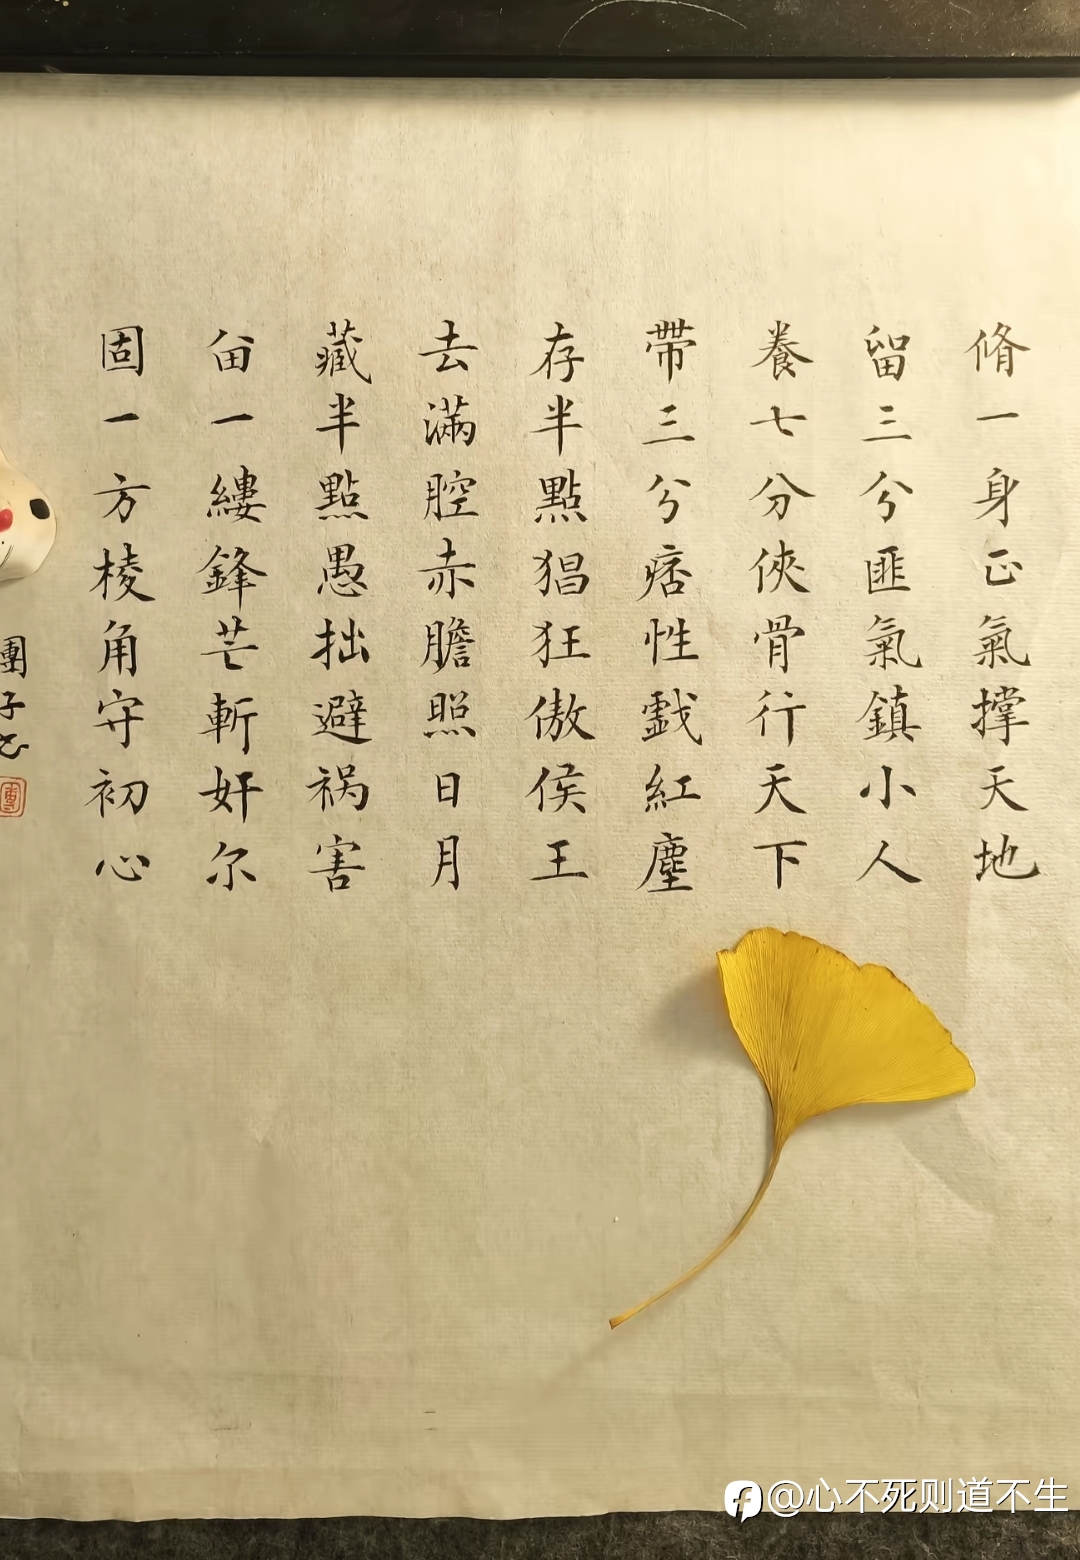 脩一身正氣撐天地
留三兮匪氣鎮小人
養七分俠骨行天下
帶三兮痞性戲紅塵
存半點猖狂傲侯王
去滿腔赤膽照日月
藏半點愚拙避祸害
畱一縷鋒芒斬奸尔
固一方棱角守初心
團子书
@心不死则道不生